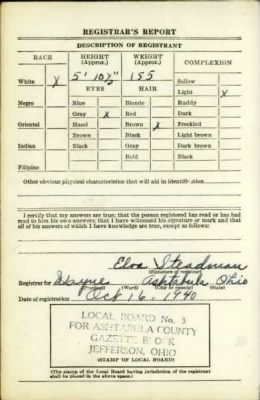 REGISTRAR'S REPORT
DESCRIPTION OF REGISTRANT
RACE HEIGHT (Approx.) WEIGHT (Approx.) COMPLEXION
5' 10½" 155
White X EYES HAIR Sallow
Light X
Negro Blue Blonde Ruddy
Gray X Red Dark
Oriental Hazel Brown X Freckled
Brown Black Light brown
Indian Black Gray Dark brown
Bald Black
Filipino
Other obvious physical characteristics that will aid in identification
I certify that my answers are true; that the person registered has read or has had
read to him his own answers; that I have witnessed his signature or mark and that
all of his answers of which I have knowledge are true, except as follows:
Elva Steadman
(Signature of registrar)
Registrar for Wayne Ashtabula Ohio
(Precinct) (Ward) (City or county) (State)
Date of registration Oct 16, 1940
LOCAL BOARD No. 3
FOR ASHTABULA COUNTY
GAZETTE BLOCK
JEFFERSON, OHIO
(STAMP OF LOCAL BOARD)
(The stamp of the Local Board having jurisdiction of the registrant
shall be placed in the above space.)